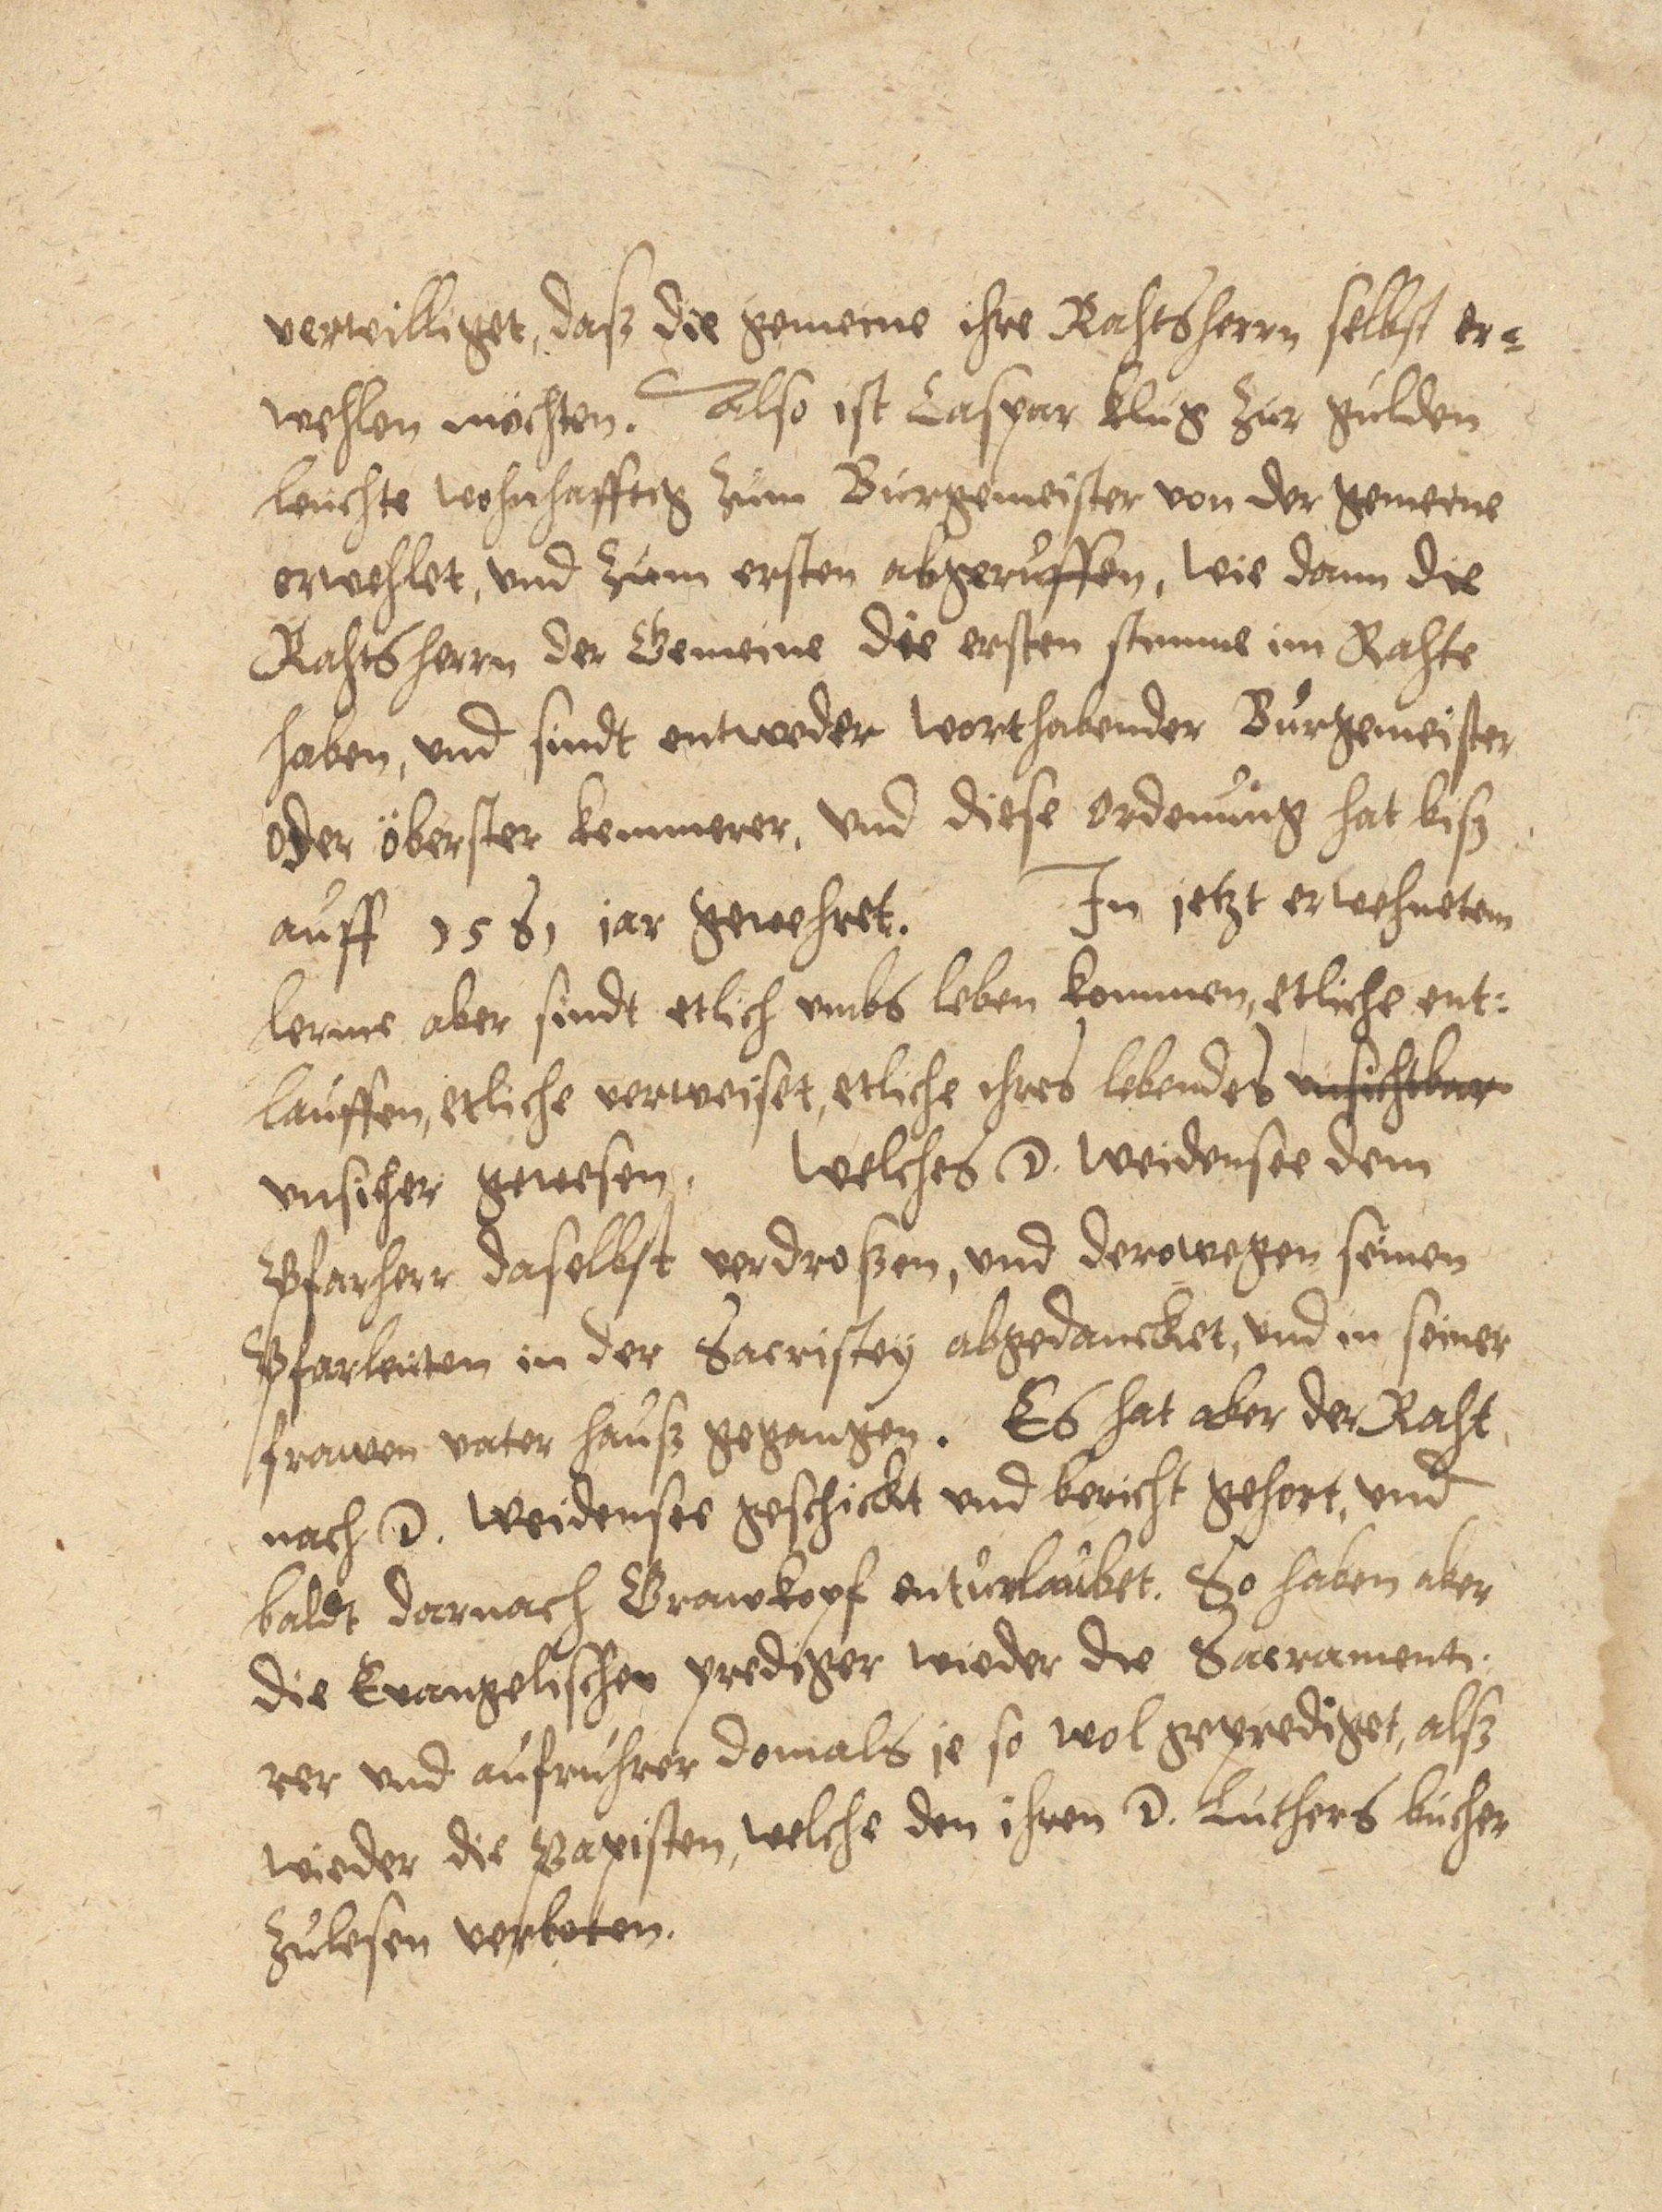 verwilliget, daß die gemeine ihre Rahtsherrn selbst er=
wehlen möchten. Also ist Caspar Klug zur gulden
leuchte wohnhafftig zum Burgemeister von der gemeine
erwehlet, vnd zum ersten abgeruffen, wie dann die
Rahtsherrn der Gemeine die ersten stimme im Rahte
haben, vnd sindt entweder worthabender Burgemeister
oder öberster kemmerer, vnd diese ordenung hat biß
auff 1581 jar gewehret. In jetzt erwehnetem
lerme aber sindt etlich vmbs leben kommen, etliche ent=
lauffen, etliche verweiset, etliche ihres lebendes vnsichtbar
vnsicher gewesen. Welches D. Weidensee dem
Pfarherr daselbst verdroßen, vnd derowegen seinen
Pfarleuten in der Sacristey abgedancket, vnd in seiner
frawen vater hauß gegangen. Es hat aber der Raht
nach D. Weidensee geschickt vnd bericht gehort, vnd
baldt darnach Grawkopf enturlaubet. So haben aber
die Evangelischen prediger wieder die Sacramenti=
rer vnd aufruhrer domals je so wol geprediget, alß
wieder die Papisten, welche den ihren D. Luthers bucher
zulesen verboten.